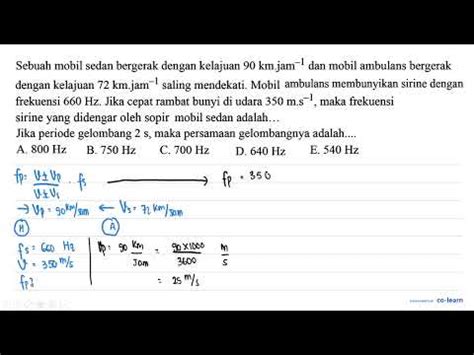 Sebuah mobil sedan bergerak dengan kelajuan 90 km.jam⁻¹ dan mobil ambulans bergerak
dengan kelajuan 72 km.jam⁻¹ saling mendekati. Mobil ambulans membunyikan sirine dengan
frekuensi 660 Hz. Jika cepat rambat bunyi di udara 350 m.s⁻¹, maka frekuensi
sirine yang didengar oleh sopir mobil sedan adalah…
Jika periode gelombang 2 s, maka persamaan gelombangnya adalah....
A. 800 Hz B. 750 Hz C. 700 Hz D. 640 Hz E. 540 Hz
fp = (V ± Vp)/(V ± Vs) . fs → fp = 350
→ Vp = 90 km/jam ← Vs = 72 km/jam
(M) (A)
fs = 660 Hz
V = 350 m/s
fp?
Vp = 90 km/Jam = (90×1000)/3600 m/s
= 25 m/s
co-learn